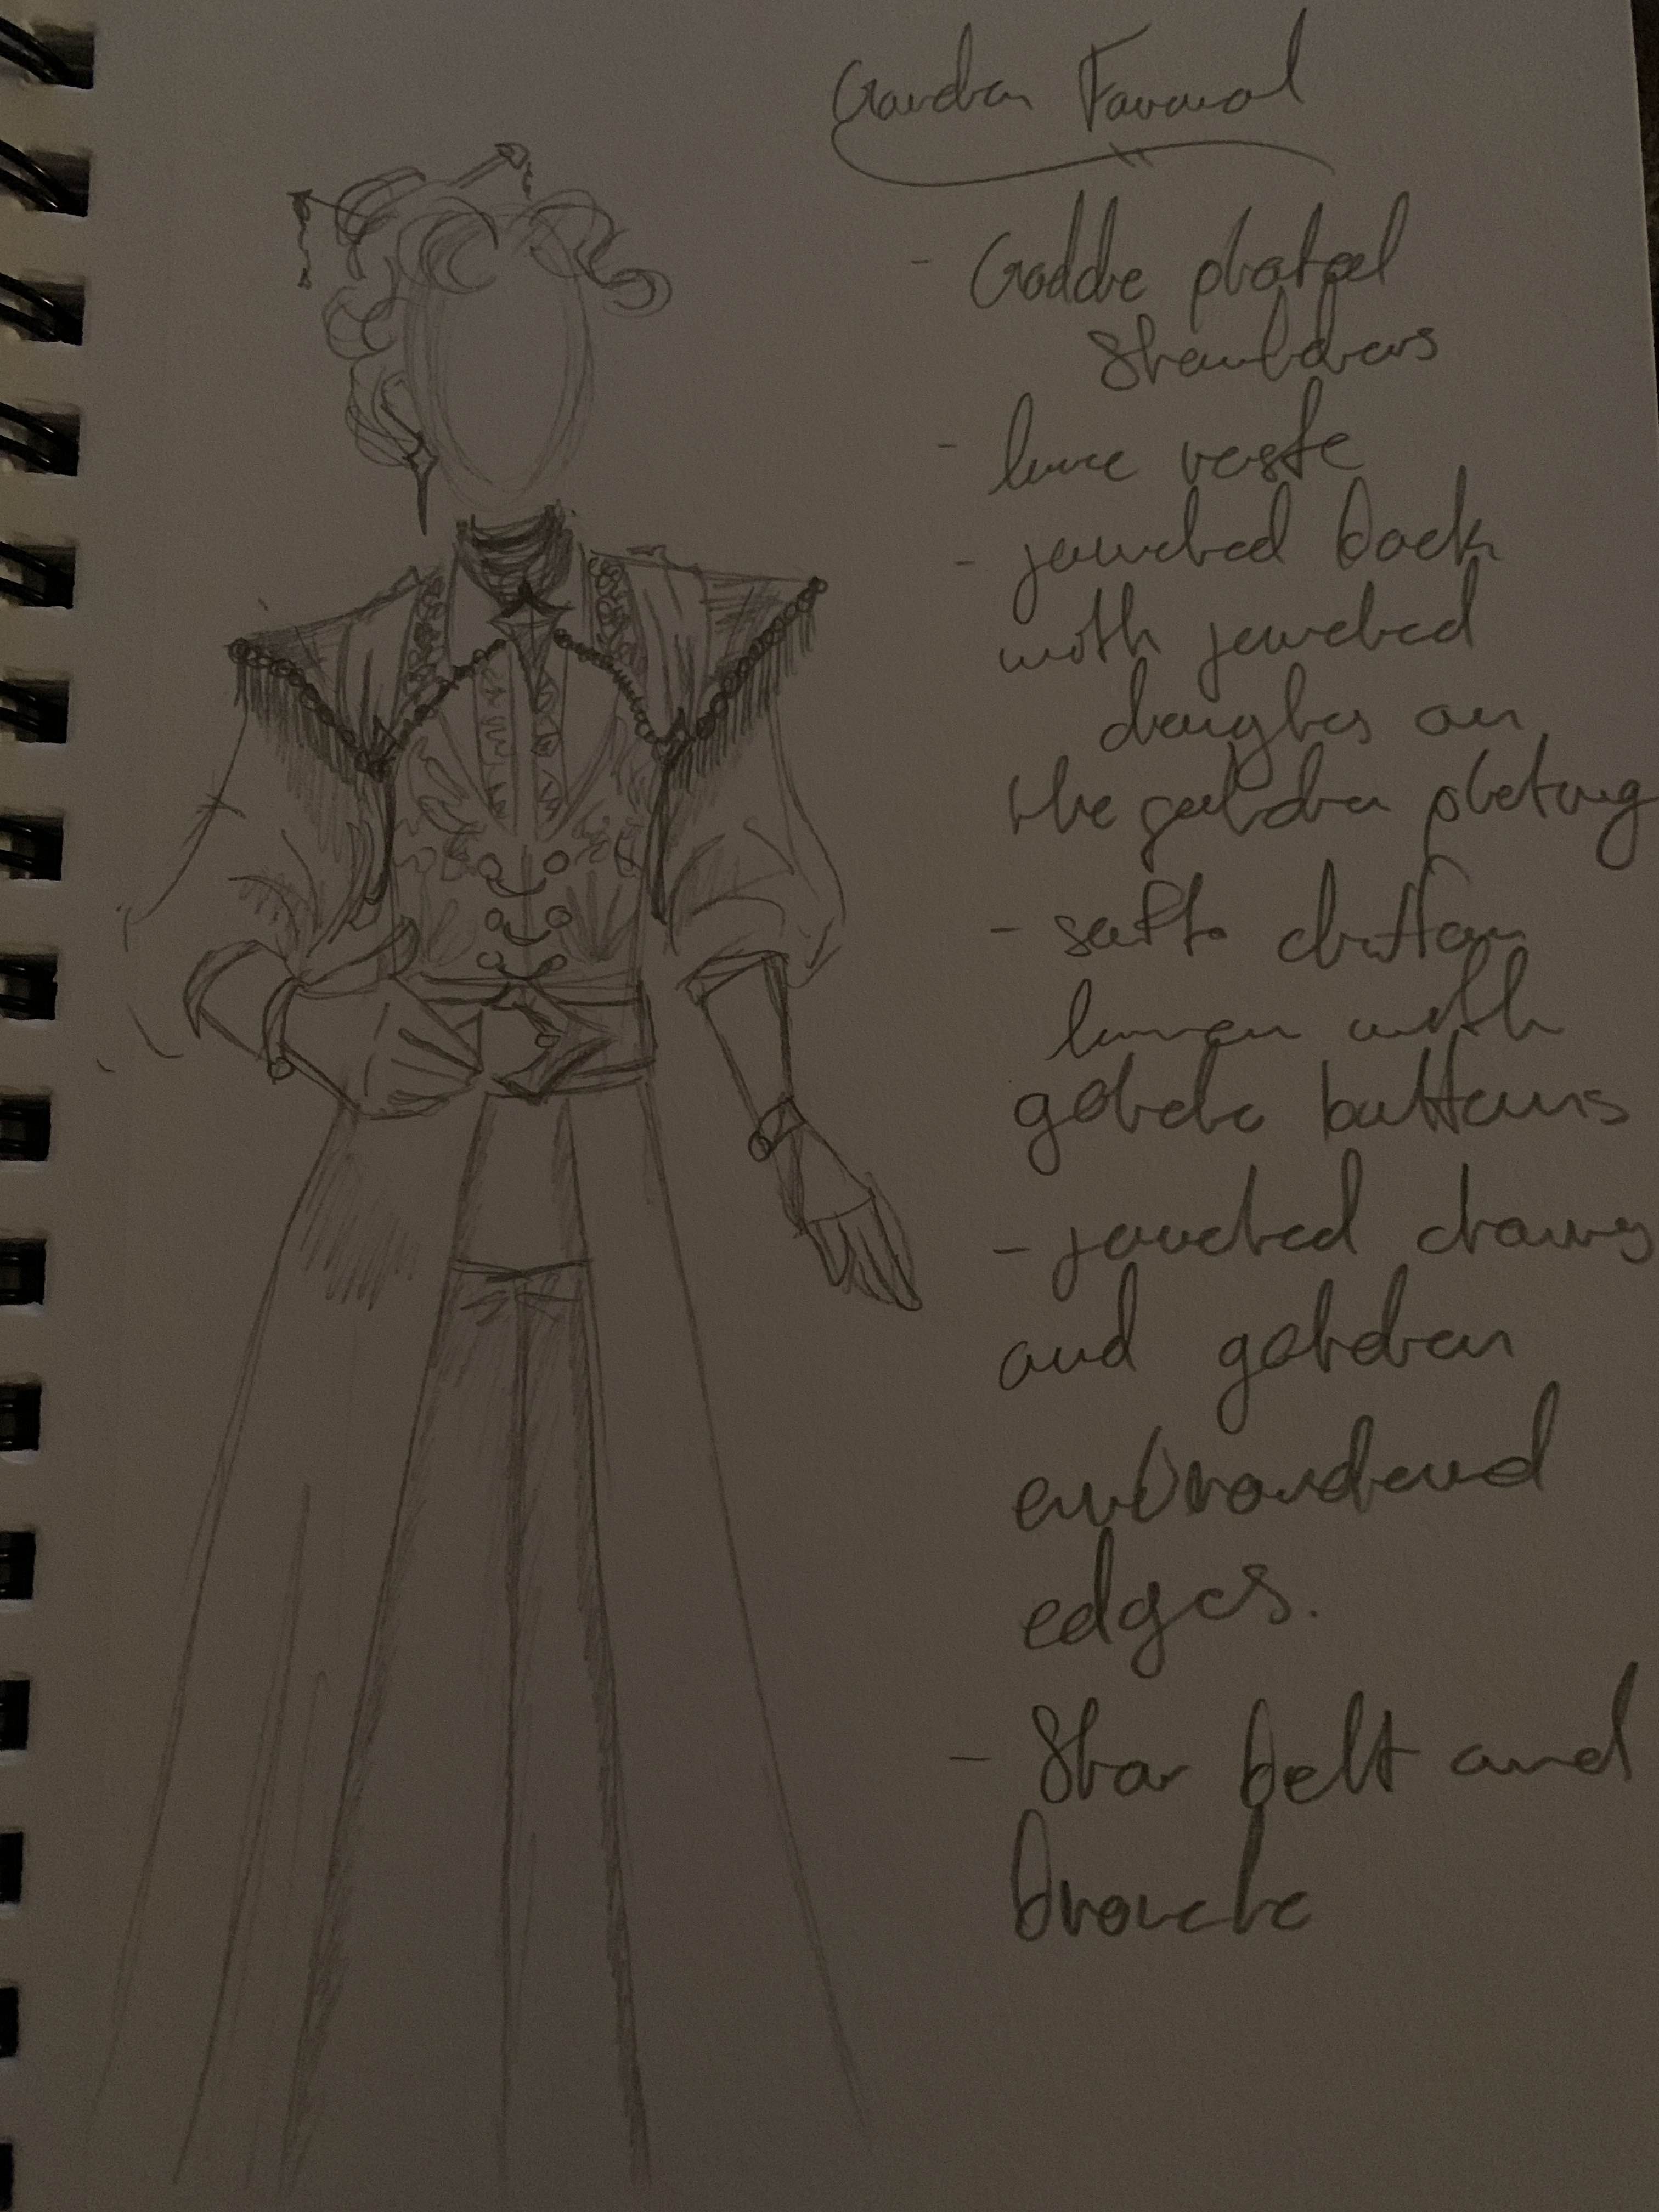 - Golde plated
shoulders
- luxe veste
- jeweled back
with jeweled
dangles on
the golden plating
- cotton
linen with
golden buttons
- jeweled chains
and golden
embroidered
edges.
- Star belt and
brouche